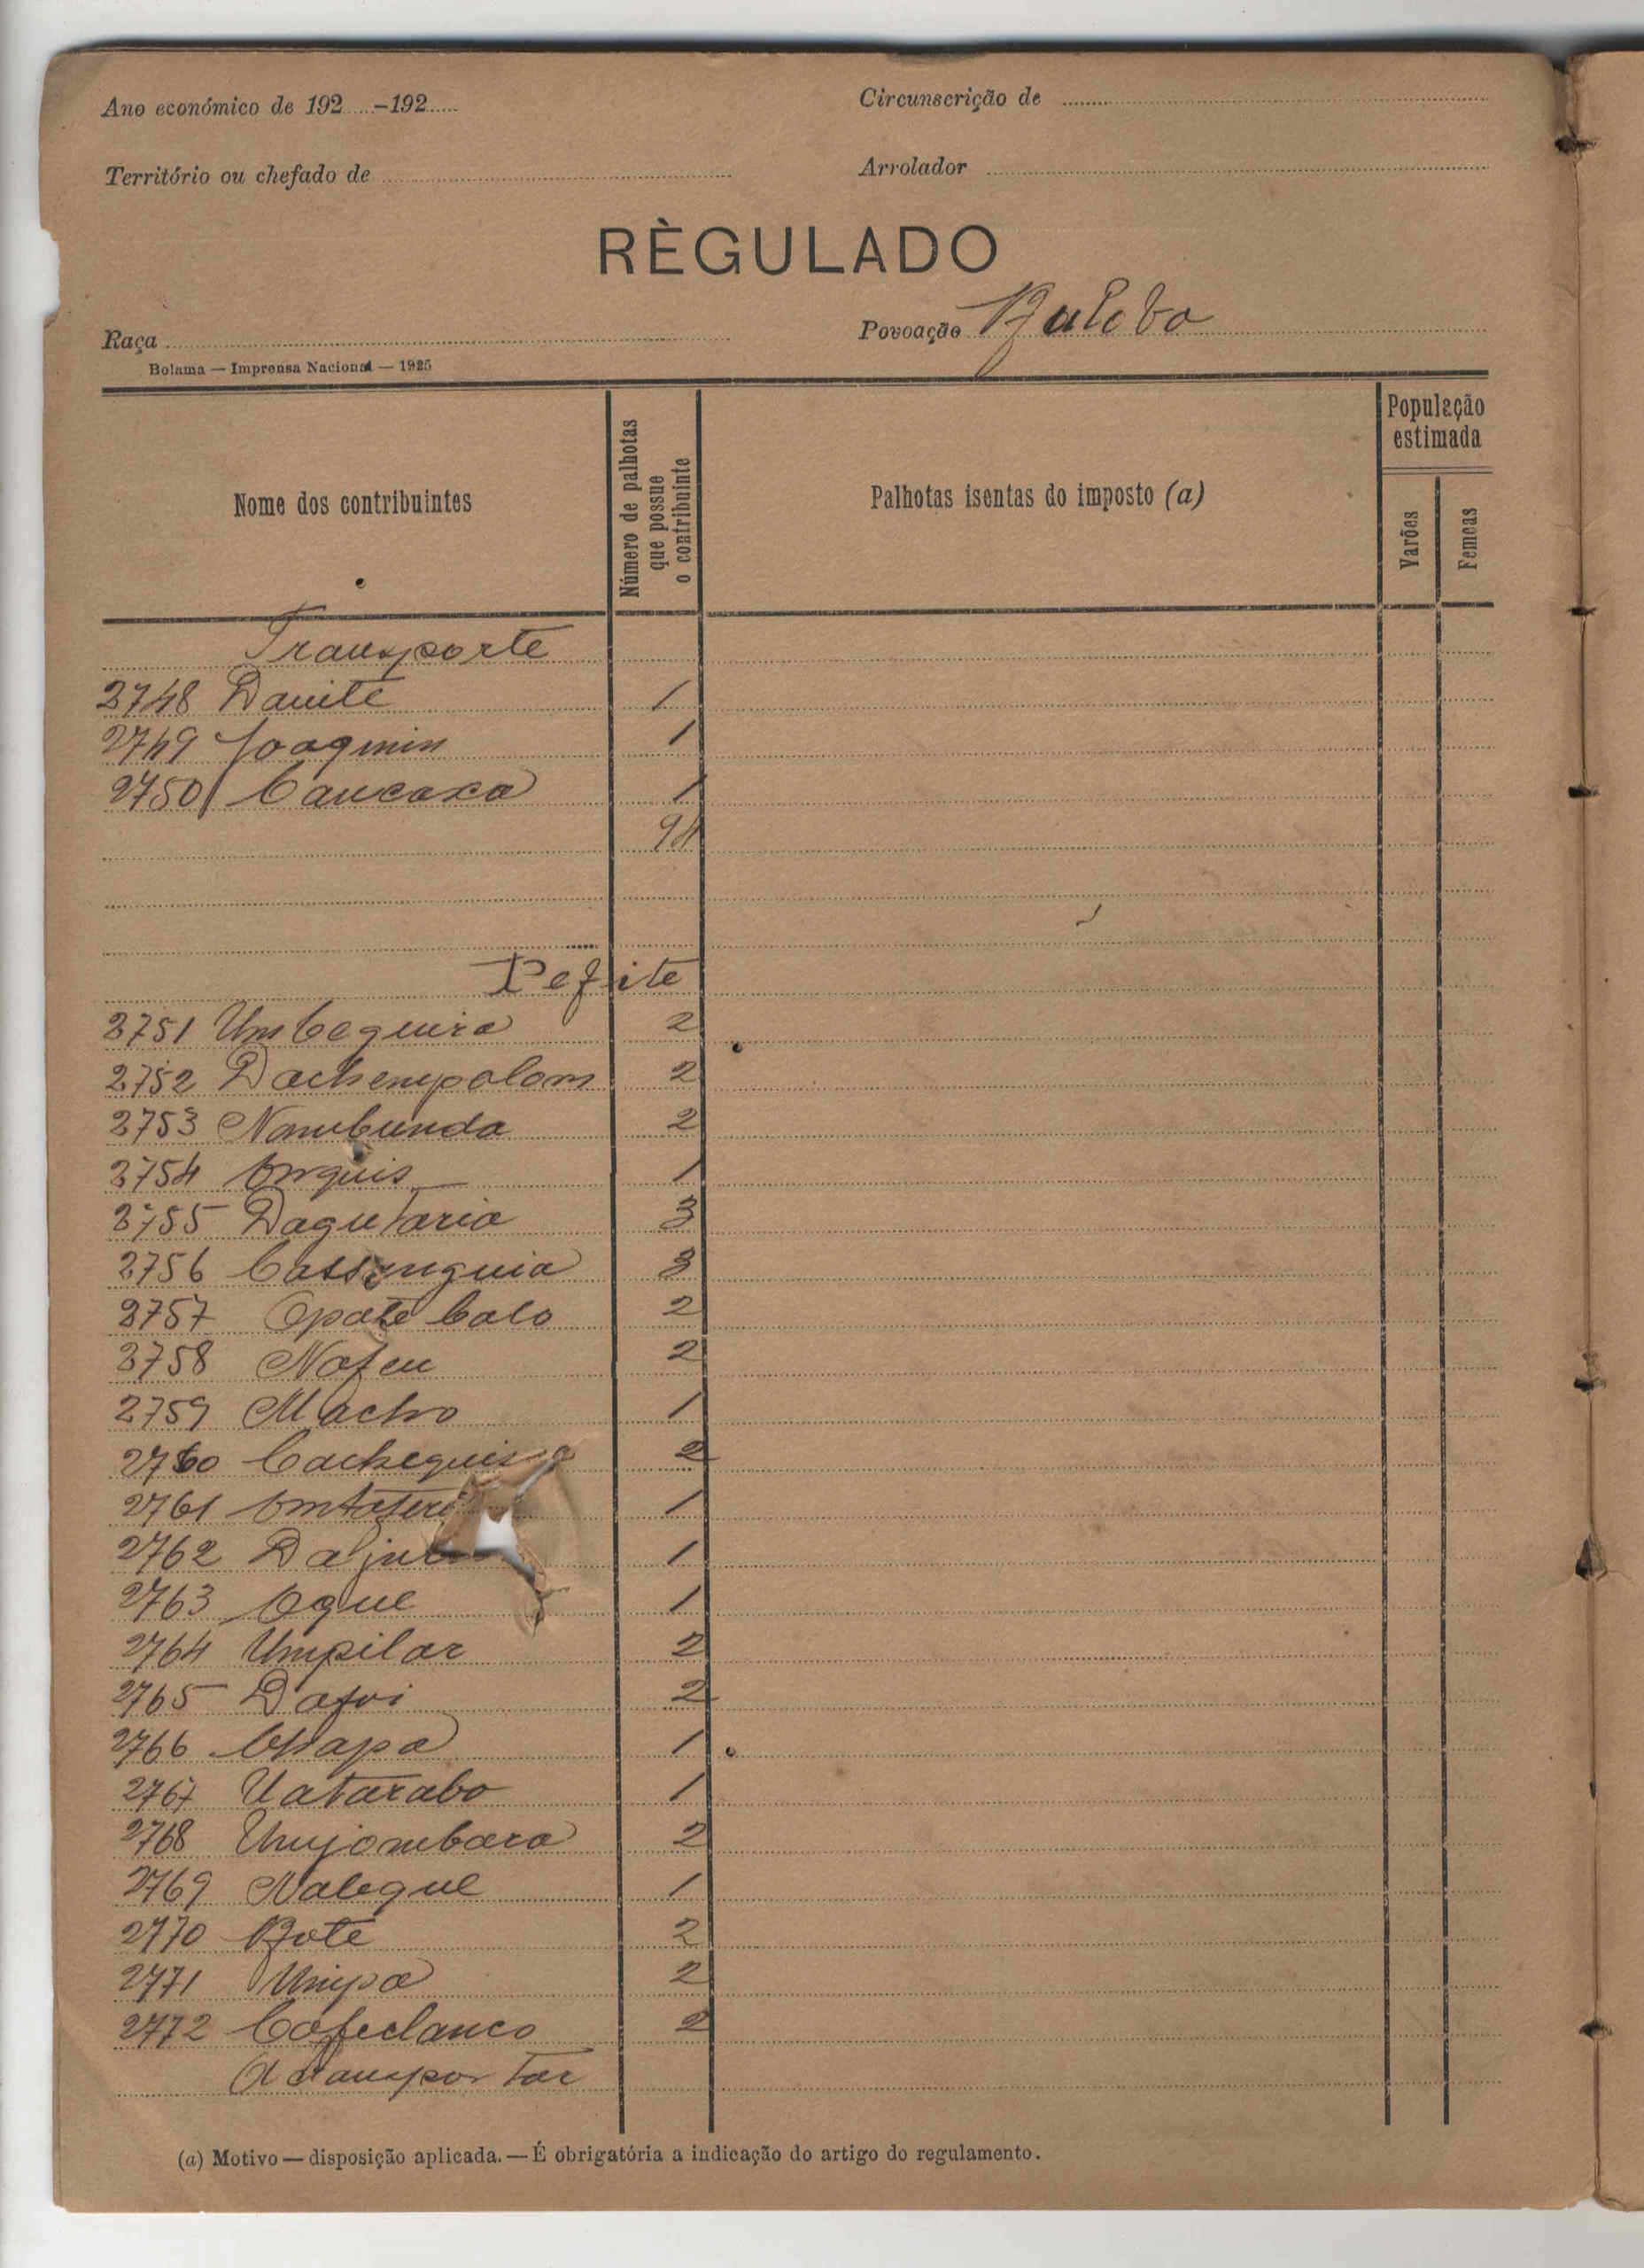 Ano económico de 192.....-192.....
Circunscrição de
Território ou chefado de
Arrolador
RÈGULADO
Raça
Povoação
Bolama — Imprensa Nacional — 1925
Nome dos contribuintes
Número de palhotas que possue o contribuinte
Palhotas isentas do imposto (a)
População estimada
Varões
Femeas
Transporte
2748 Davite 1
2749 Joaqmin 1
2750 Caucaxa 1
94
Pefite
2751 Umbequira 2
2752 Dachempolom 2
2753 Nambunda 2
2754 1
2755 Dagutaria 3
2756 3
2757 Opate Calo 2
2758 Nofeu 2
2759 Macho 1
2760 2
2761 1
2762 1
2763 Ogue 1
2764 Umpilar 2
2765 Dafoi 2
2766 Chapa 1
2767 Uatarabo 1
2768 Umjombara 2
2769 Nabegue 1
2770 Bote 2
2771 Umpa 2
2772 Cafeclanco 2
A transportar
(a) Motivo — disposição aplicada. — É obrigatória a indicação do artigo do regulamento.